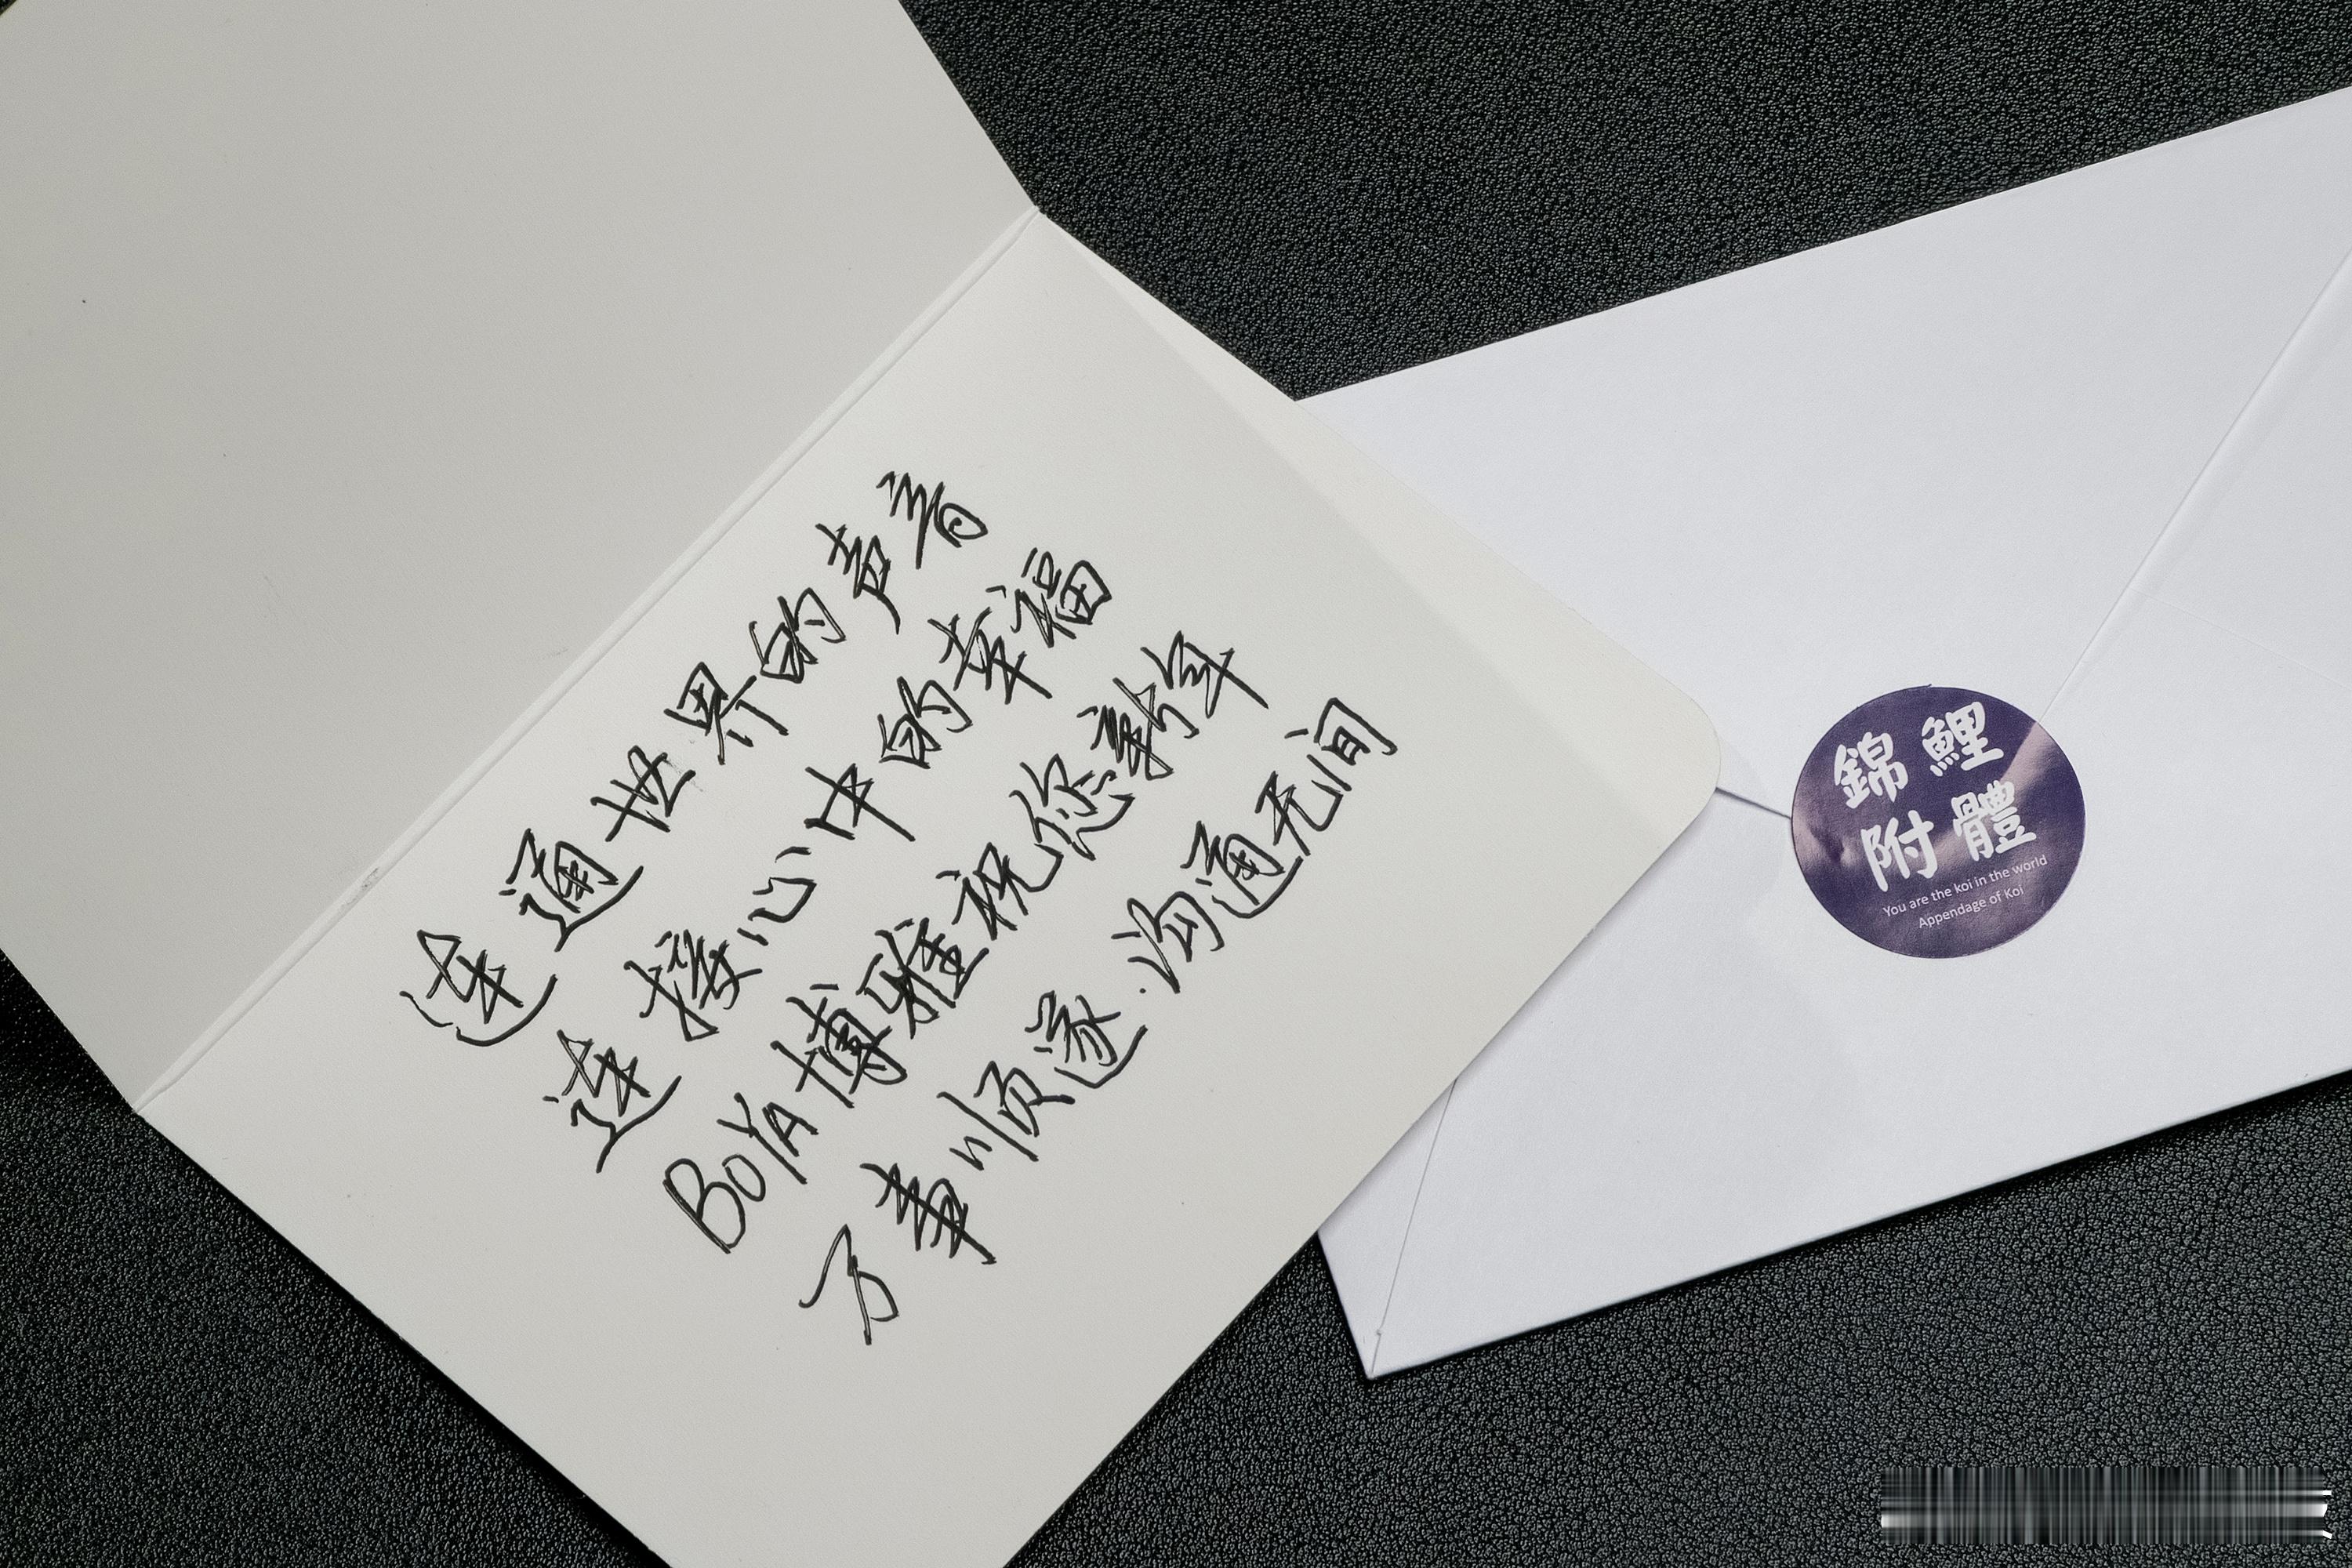 连通世界的声音
连接心中的幸福
BOYA博雅祝您新年
万事顺遂.沟通无间
錦鯉
附體
You are the koi in the world
Appendage of Koi